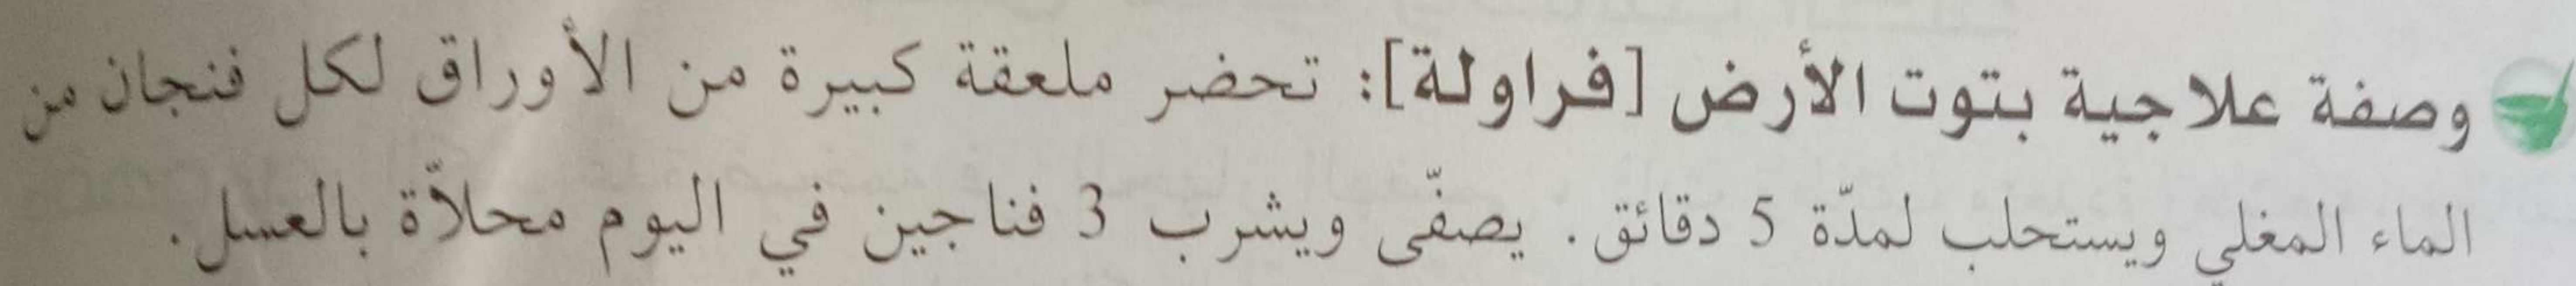 وصفة علاجية بتوت الأرض [فراولة]: تحضر ملعقة كبيرة من الأوراق لكل فنجان من
الماء المغلي ويستحلب لمدّة 5 دقائق. يصفّى ويشرب 3 فناجين في اليوم محلاّة بالعسل.